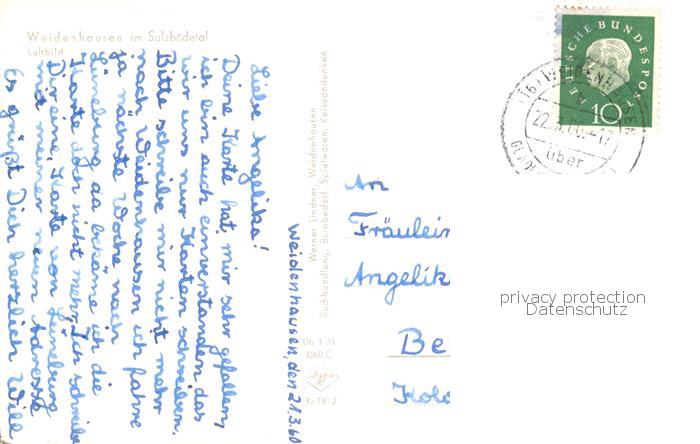 Weidenhausen im Salzbödetal
Luftbild
Weidenhausen, den 21.3.60
Liebe Angelika!
Deine Karte hat mir sehr gefallen,
ich bin auch einverstanden das
wir uns nur Karten schreiben.
Bitte schreibe mir nicht mehr
nach Weidenhausen ich fahre
ja nächste Woche nach
Lüneburg da bekäme ich die
Karte dan nicht mehr. Ich schreibe
Dir eine Karte von Lüneburg
mit meiner neuen Adresse
Es grüßt Dich herzlich Wille
Werner Lindner, Weidenhausen
Buchhandlung, Bürobedarf, Spielwaren, Reiseandenken
06 3 33
060 C
Agfa
3/3912
DEUTSCHE BUNDESPOST
10
über
An
Fräulein
Angelik
Be
Kol
privacy protection
Datenschutz